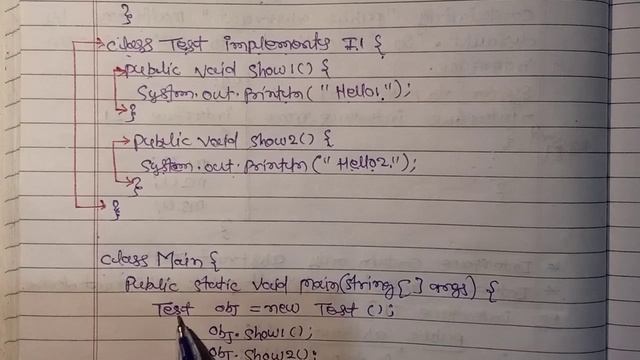 }
class Test implements I1 {
public void show1() {
System.out.println("Hello1.");
}
public void show2() {
System.out.println("Hello2.");
}
}
class Main {
public static void main(string[] args) {
Test obj = new Test ();
obj.show1();
obj.show2();